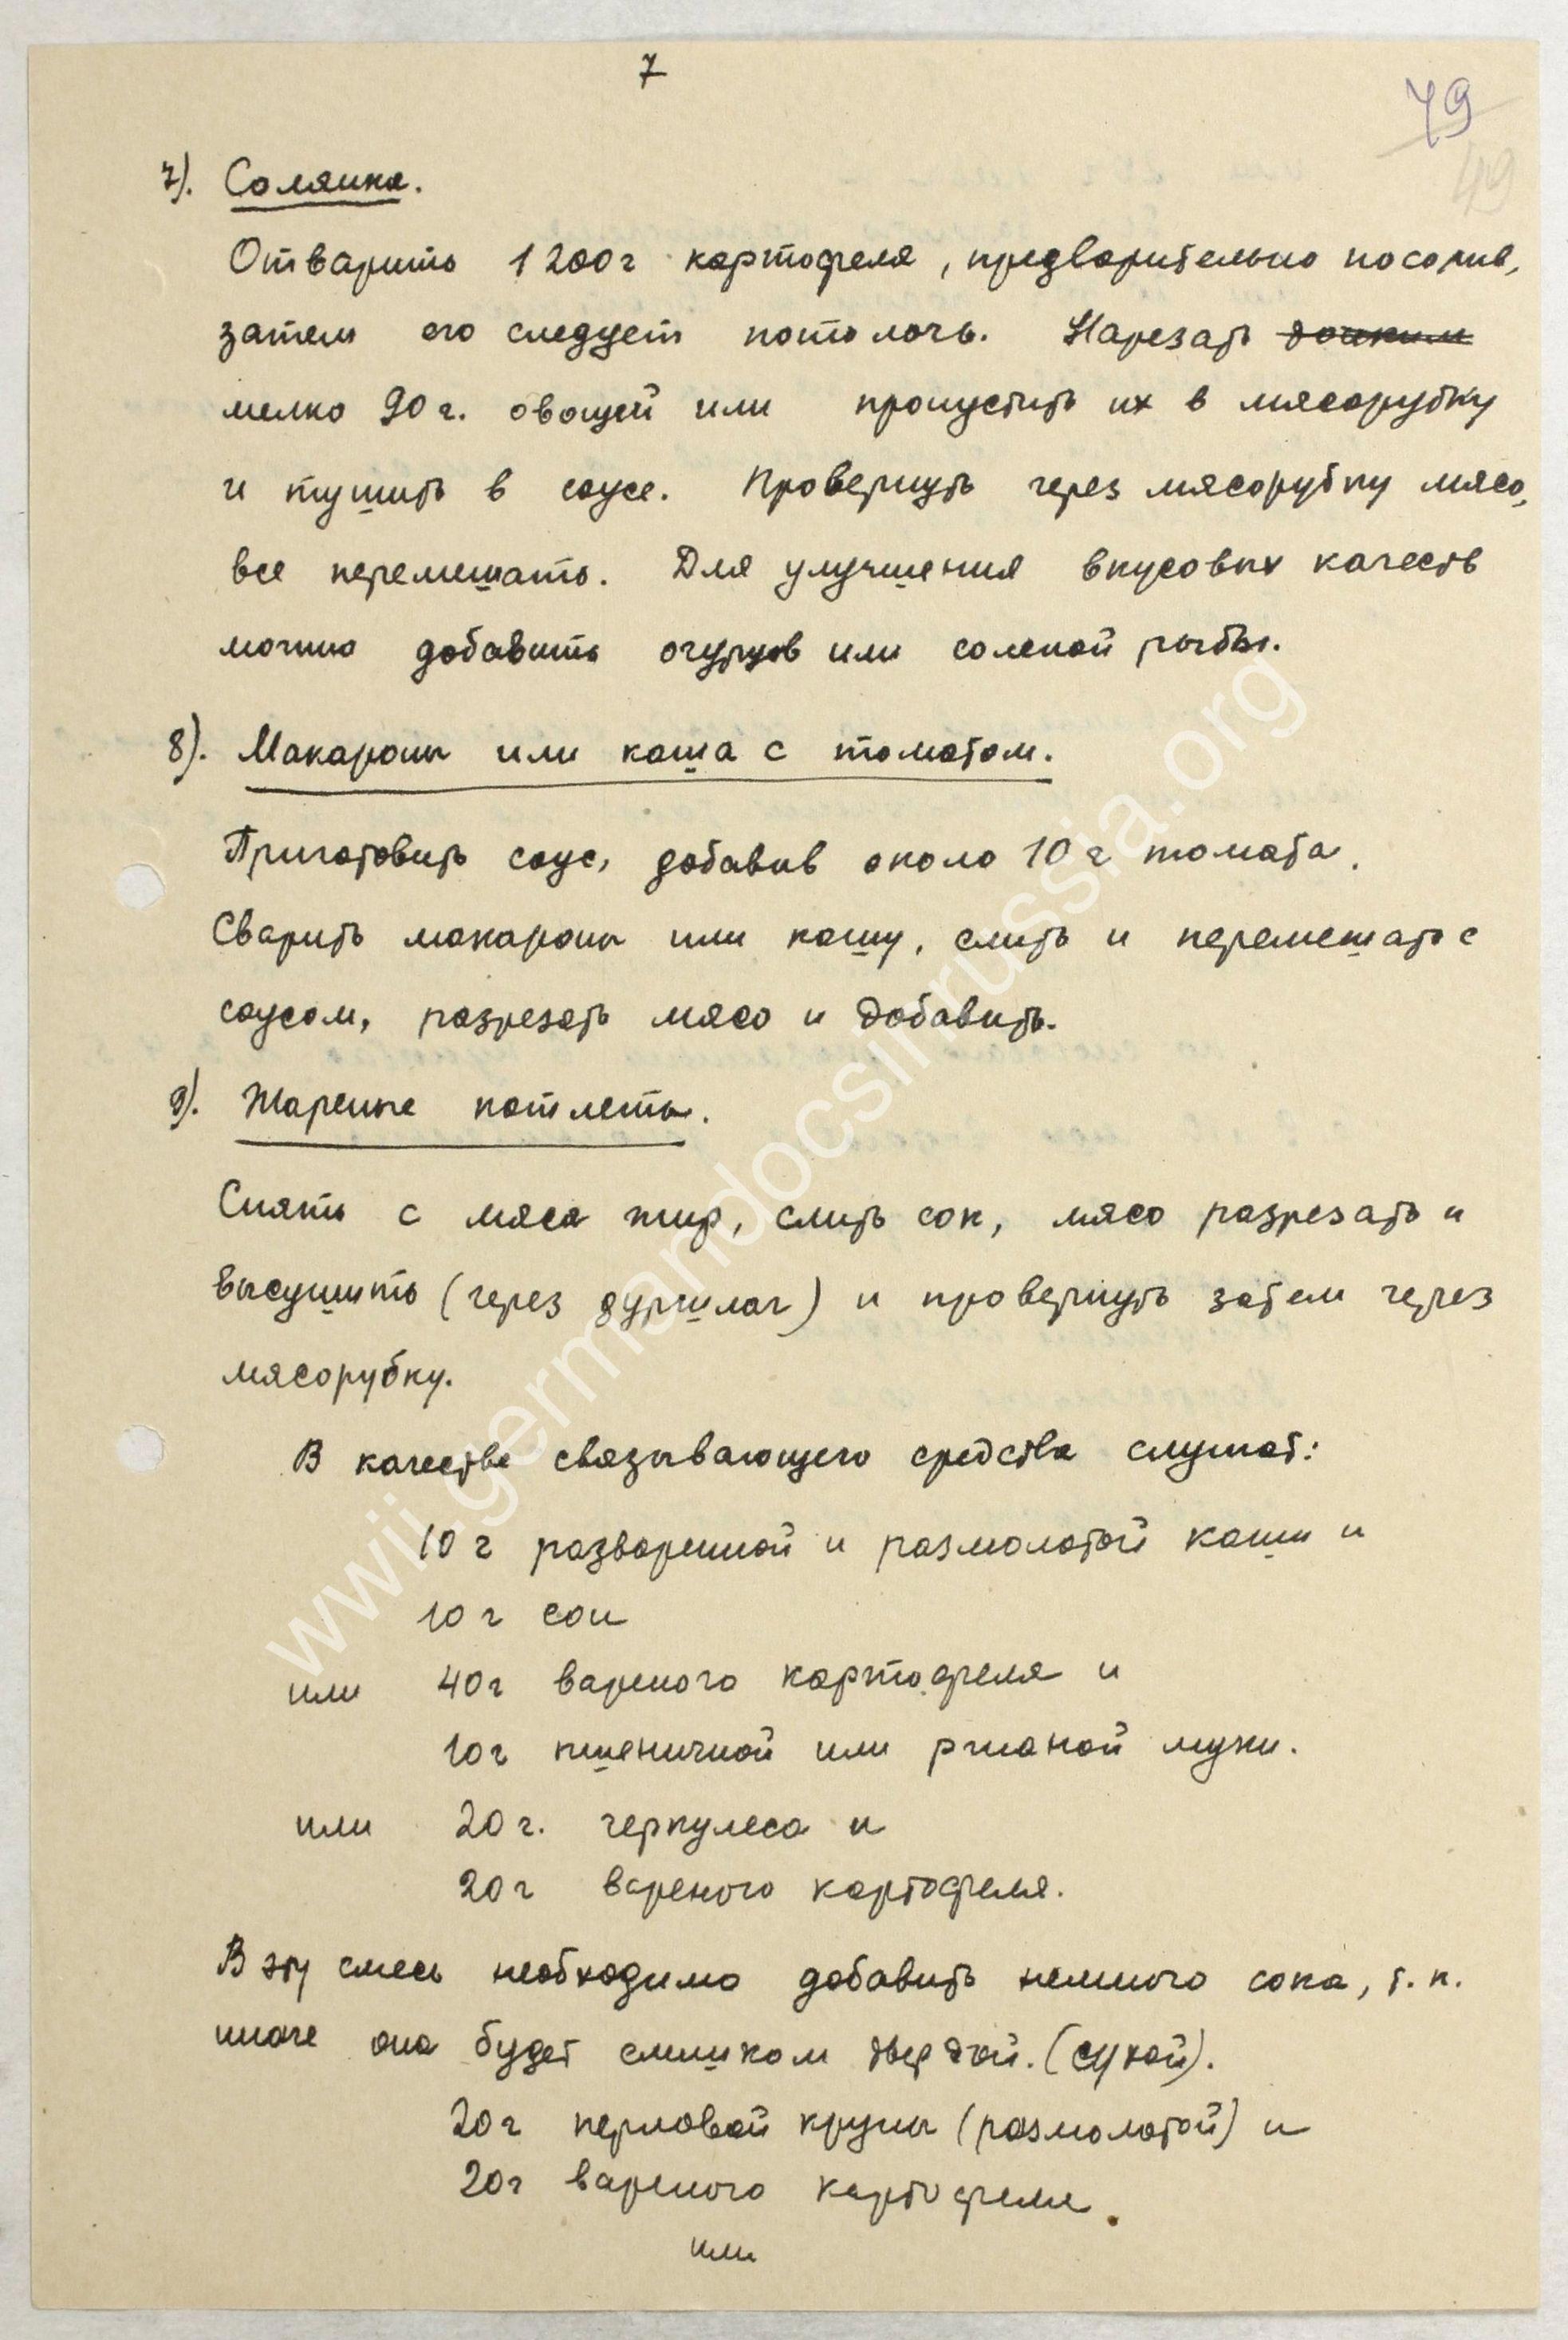 7
79
49
7). Солянка.
Отварить 1200г картофеля, предварительно посолив,
затем его следует потолочь. Нарезать тонким
мелко 90г. овощей или пропустить их в мясорубку
и тушить в соусе. Провернуть через мясорубку мясо,
все перемешать. Для улучшения вкусовых качеств
можно добавить огурцов или соленой рыбы.
8). Макароны или каша с томатом.
Приготовить соус, добавив около 10 г томата.
Сварить макароны или кашу, слить и перемешать с
соусом, разрезать мясо и добавить.
9). Жареные котлеты.
Снять с мяса жир, слить сок, мясо разрезать и
высушить (через дуршлаг) и провернуть затем через
мясорубку.
В качестве связывающего средства служат:
10 г разваренной и размолотой каши и
10 г сои
или 40г вареного картофеля и
10г пшеничной или ржаной муки.
или 20г. геркулеса и
20г вареного картофеля.
В эту смесь необходимо добавить немного сока, т.к.
иначе она будет слишком твердой. (сухой).
20г перловой крупы (размолотой) и
20г вареного картофеля.
или
wwii.germandocsinrussia.org